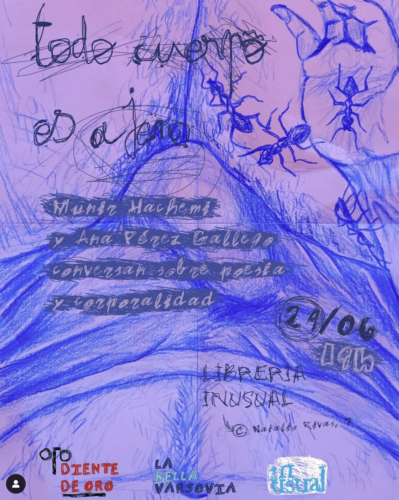 todo cuerpo
es ajeno
Munir Hachemi
y Ana Pérez Gallego
conversan sobre poesía
y corporalidad
29/06
19h
LIBRERIA
INUSUAL
©
OTO
DIENTE
DE ORO
LA
BELLA
VARSOVIA